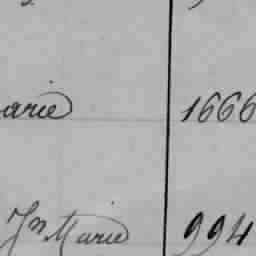 arie 1666
Jn Marie 994